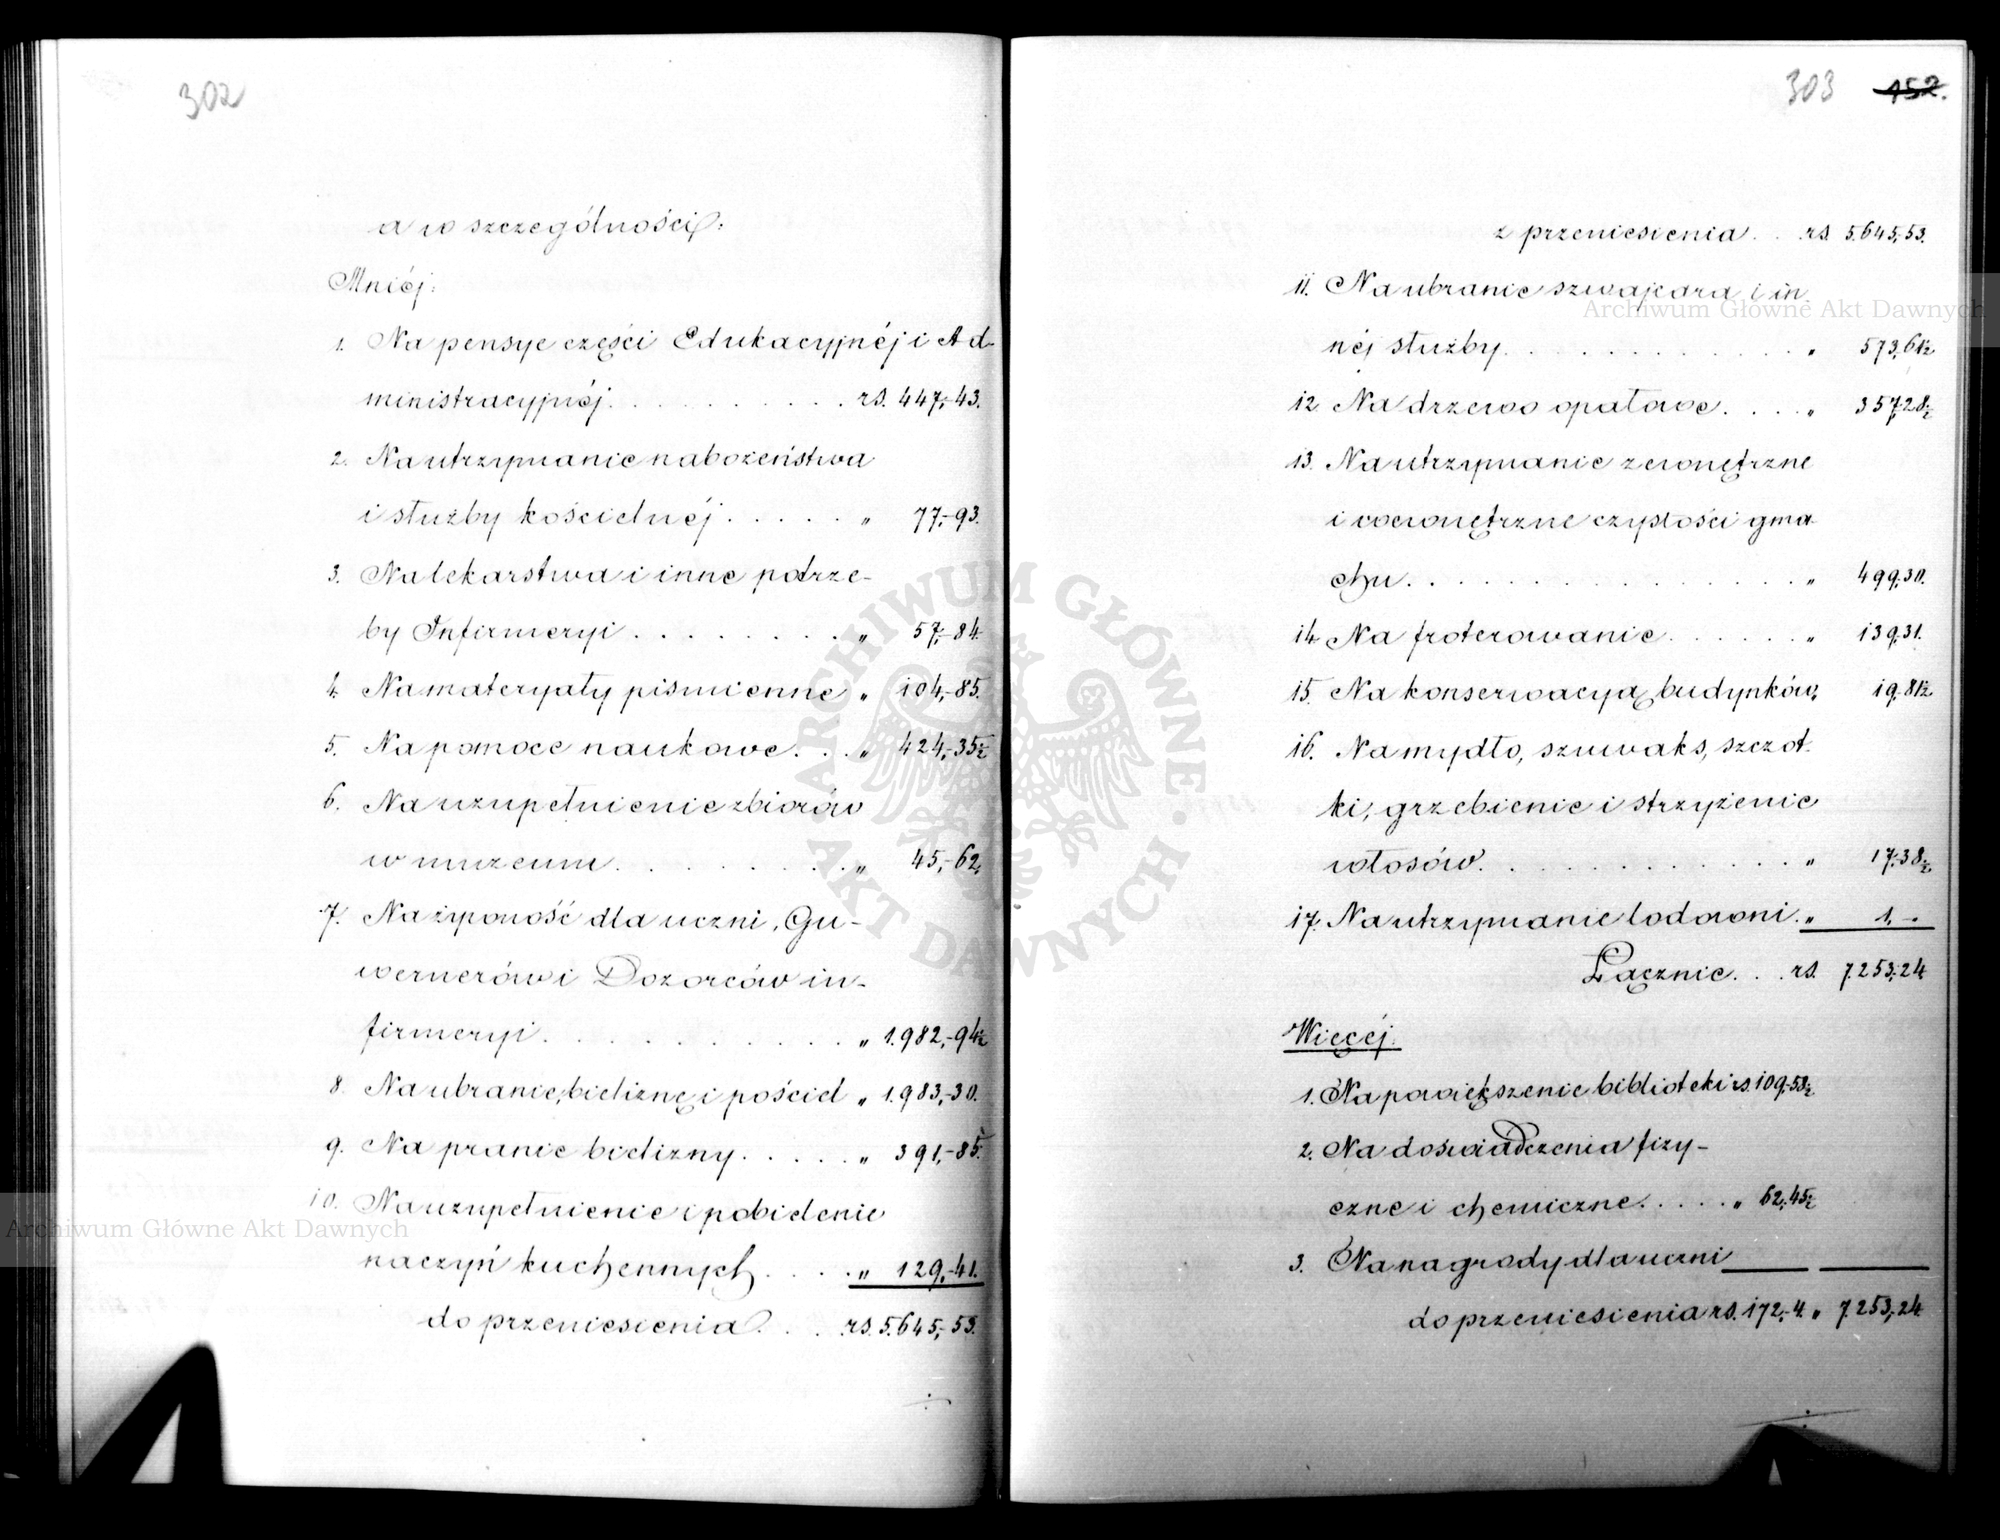 302
a w szczególności:
Mniéj:
1. Na pensye części Edukacyjnéj i Ad-
ministracyjnéj . . . . . . . . . . rs. 447,-43.
2. Na utrzymanie nabożeństwa
i służby kościelnéj . . . . . „ 77,-93.
3. Na lekarstwa i inne potrze-
by Infirmeryi . . . . . . . . „ 57,-84.
4. Na materyały piśmienne „ 104,-85.
5. Na pomoce naukowe . . . „ 424,-35½
6. Na uzupełnienie zbiorów
w muzeum . . . . . . . . „ 45,-62.
7. Na żywność dla uczni, Gu-
wernerów i Dozorców in-
firmeryi . . . . . . . . . . „ 1.982,-94½
8. Na ubranie, bieliznę i pościel „ 1.983,-30.
9. Na pranie bielizny . . . . . „ 391,-85.
10. Na uzupełnienie i pobielenie
naczyń kuchennych . . . . „ 129,-41.
do przeniesienia . . . rs. 5.645,-53.
303 152.
z przeniesienia . . . rs. 5.645,-53.
11. Na ubranie szwajcara i in-
néj służby . . . . . . . . . . . . „ 573,61½
12. Na drzewo opałowe . . . . „ 357,28½
13. Na utrzymanie zewnętrzne
i wewnętrzne czystości gma-
chu . . . . . . . . . . . . . . . „ 499,30.
14. Na froterowanie . . . . . . „ 139,31.
15. Na konserwacyą budynków „ 19,-81½
16. Na mydło, szuwaks, szczot-
ki, grzebienie i strzyżenie
włosów . . . . . . . . . . . . . „ 17,-38½
17. Na utrzymanie lodowni . „ 1.-.
Łącznie . . . rs. 7.253,-24
Więcéj.
1. Na powiększenie biblioteki rs. 109,-58½
2. Na doświadczenia fizy-
czne i chemiczne . . . . . „ 62,-45½
3. Na nagrody dla uczni
do przeniesienia rs. 172,-4. „ 7.253,-24
Archiwum Główne Akt Dawnych
Archiwum Główne Akt Dawnych
ARCHIWUM GŁÓWNE · AKT DAWNYCH ·